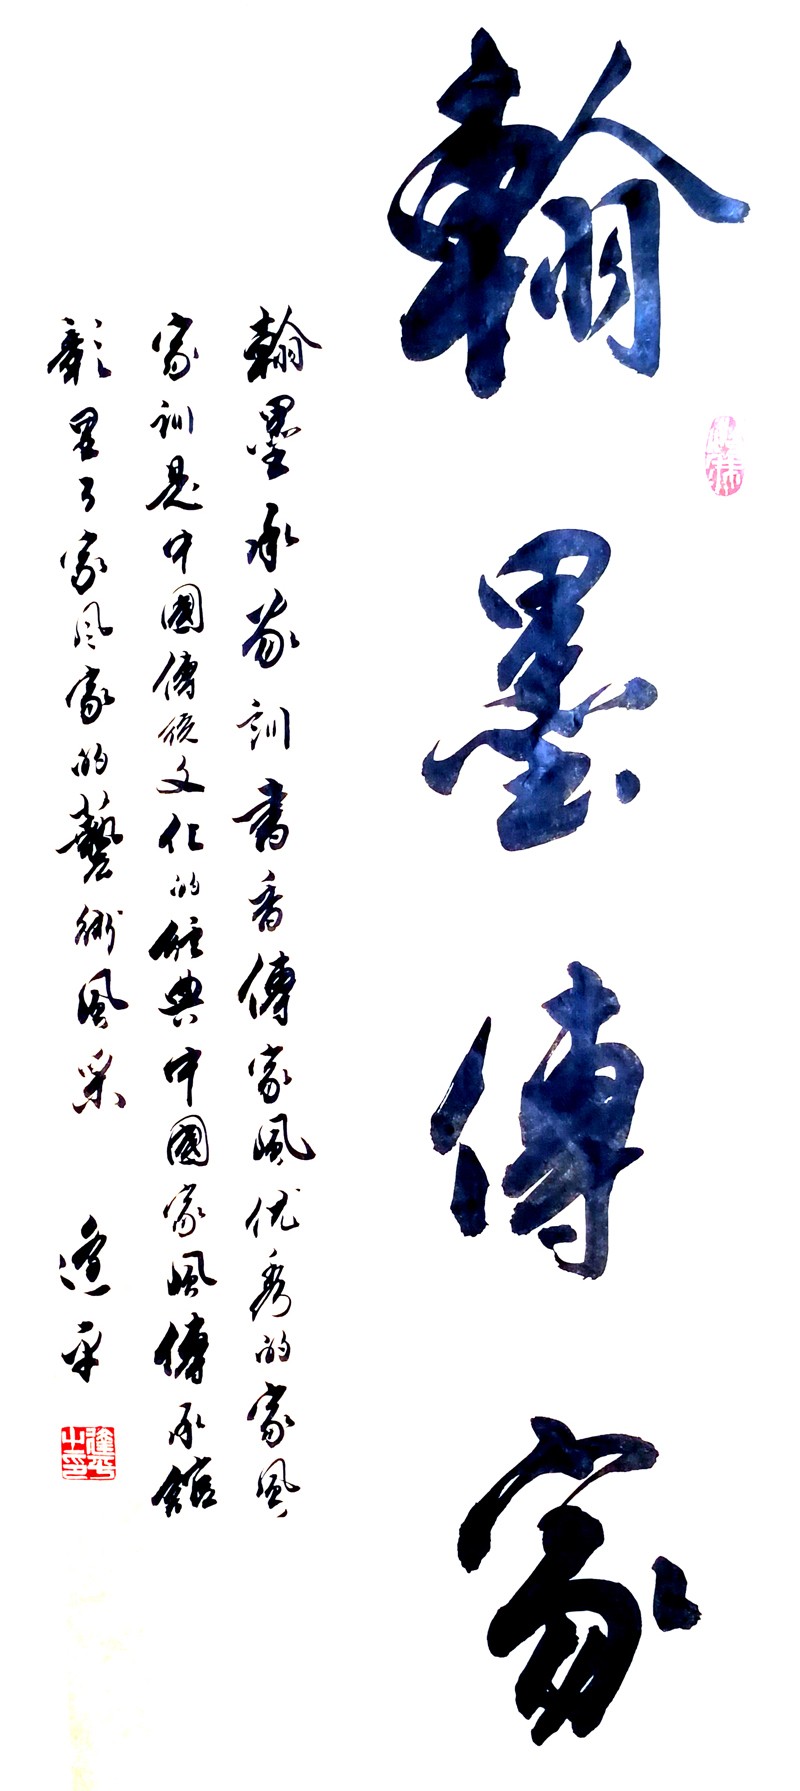 翰墨傳家
翰墨承家訓書香傳家風优秀的家風
家訓是中國傳統文化的經典中國家風傳承館
彰显了家风家的藝術風采
逢平
逢平之印